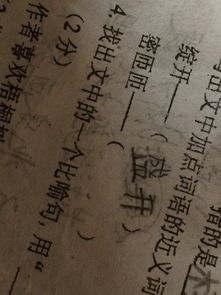 文中加点词语的近义词
绽开____( 盛开 )
密密匝匝____( )
4. 找出文中的一个比喻句,用“____
(2分)
作者喜欢梧桐树